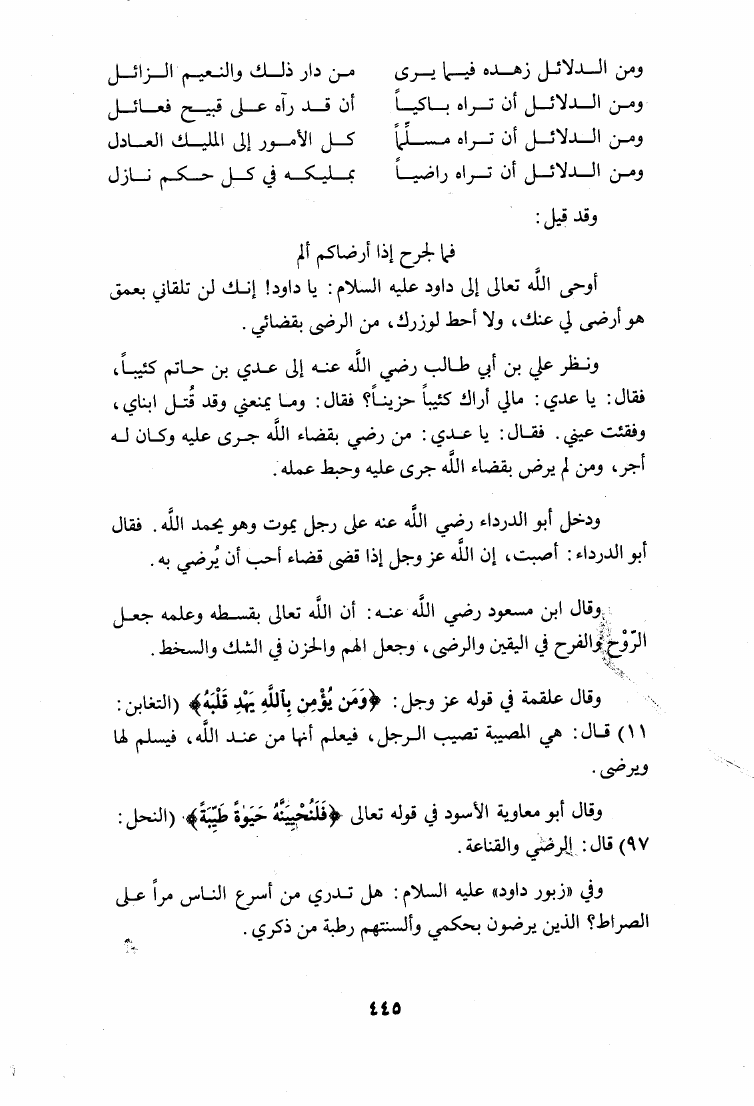 ومن الدلائل زهده فيما يرى من دار ذلك والنعيم الزائل
ومن الدلائل أن تراه باكياً أن قد رآه على قبيح فعائل
ومن الدلائل أن تراه مسلّماً كل الأمور إلى المليك العادل
ومن الدلائل أن تراه راضياً بمليكه في كل حكم نازل
وقد قيل :
فما لجرح إذا أرضاكم ألم
أوحى اللَّه تعالى إلى داود عليه السلام : يا داود! إنك لن تلقاني بعمق
هو أرضى لي عنك ، ولا أحط لوزرك، من الرضى بقضائي .
ونظر علي بن أبي طالب رضي اللَّه عنه إلى عدي بن حاتم كئيباً ،
فقال : يا عدي : مالي أراك كئيباً حزيناً؟ فقال : وما يمنعني وقد قُتل ابناي ،
وفقئت عيني . فقال : يا عدي : من رضي بقضاء اللَّه جرى عليه وكان له
أجر ، ومن لم يرض بقضاء اللَّه جرى عليه وحبط عمله .
ودخل أبو الدرداء رضي اللَّه عنه على رجل يموت وهو يحمد اللَّه . فقال
أبو الدرداء : أصبت ، إن اللَّه عز وجل إذا قضى قضاء أحب أن يُرضي به .
وقال ابن مسعود رضي اللَّه عنه : أن اللَّه تعالى بقسطه وعلمه جعل
الرّوْح والفرح في اليقين والرضى ، وجعل الهم والحزن في الشك والسخط .
وقال علقمة في قوله عز وجل : ﴿وَمَن يُؤْمِن بِٱللَّهِ يَهْدِ قَلْبَهُ﴾ (التغابن :
١١) قال : هي المصيبة تصيب الرجل ، فيعلم أنها من عند اللَّه ، فيسلم لها
ويرضى .
وقال أبو معاوية الأسود في قوله تعالى ﴿فَلَنُحْيِيَنَّهُ حَيَوٰةً طَيِّبَةً﴾ (النحل :
٩٧) قال : الرضي والقناعة .
وفي «زبور داود» عليه السلام : هل تدري من أسرع الناس مراً على
الصراط؟ الذين يرضون بحكمي وألسنتهم رطبة من ذكري .
٤٤٥